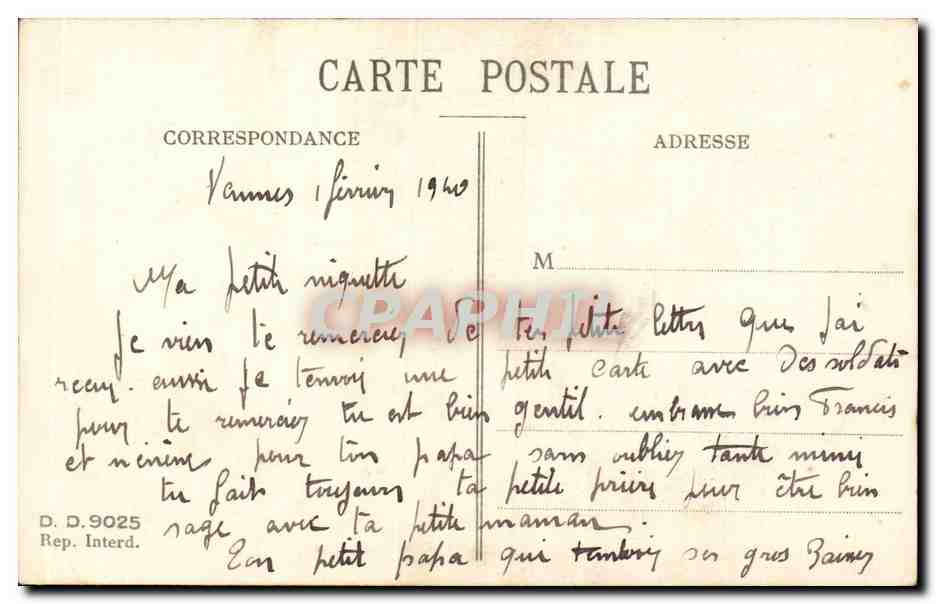 CARTE POSTALE
CORRESPONDANCE
ADRESSE
Vannes 1 février 1940
M
Ma petite niquette
Je viens te remercier de tes petites lettres que j'ai
reçu. aussi je t'envoi une petite carte avec des soldats
pour te remercier tu est bien gentil. embrasse bien Francis
et pour ton papa sans oublier tante mimi
tu fait toujours ta petite prière pour être bien
sage avec ta petite maman.
Ton petit papa qui ses gros Baiser
D. D. 9025
Rep. Interd.
CPAPHIL